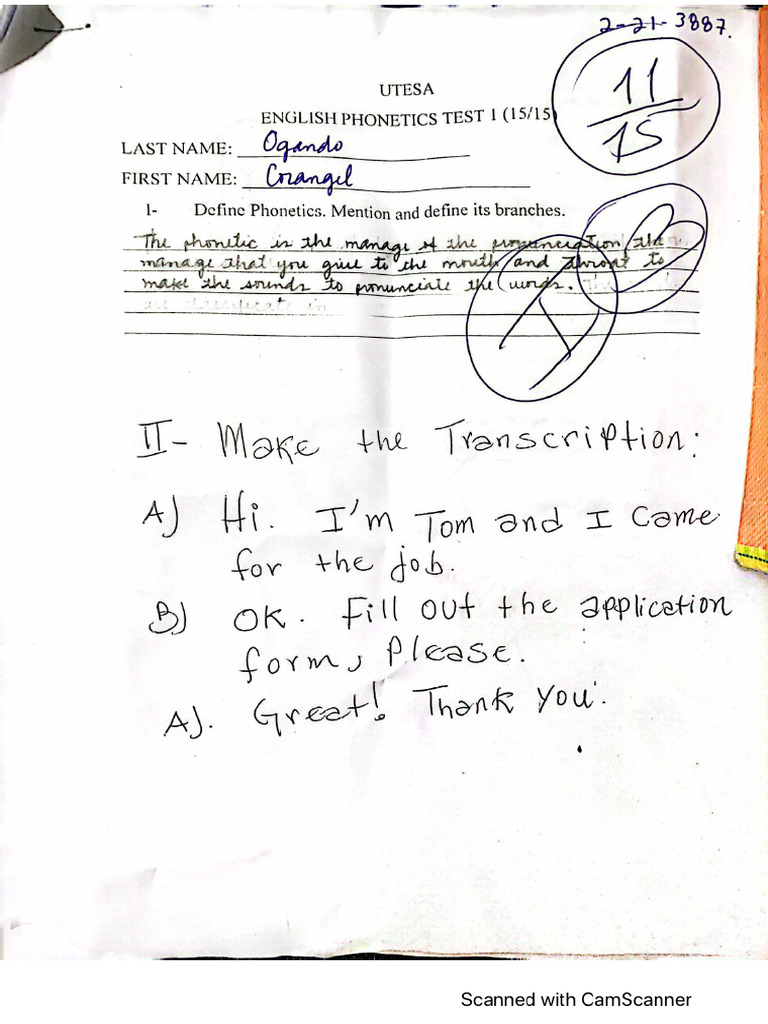 2-21-3887.
UTESA
ENGLISH PHONETICS TEST 1 (15/15)
11
15
LAST NAME: Ogando
FIRST NAME: Corangel
I- Define Phonetics. Mention and define its branches.
The phonetic is the manage of the pronunciation, the
manage that you give to the mouth and throat to
make the sounds to pronunciate the words. The
are clasificate in
II- Make the Transcription:
A) Hi. I'm Tom and I came
for the job.
B) OK. Fill out the application
form, Please.
A). Great! Thank you.
Scanned with CamScanner